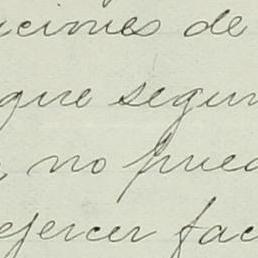 ciones de
que segun
no pued
ejercer fac